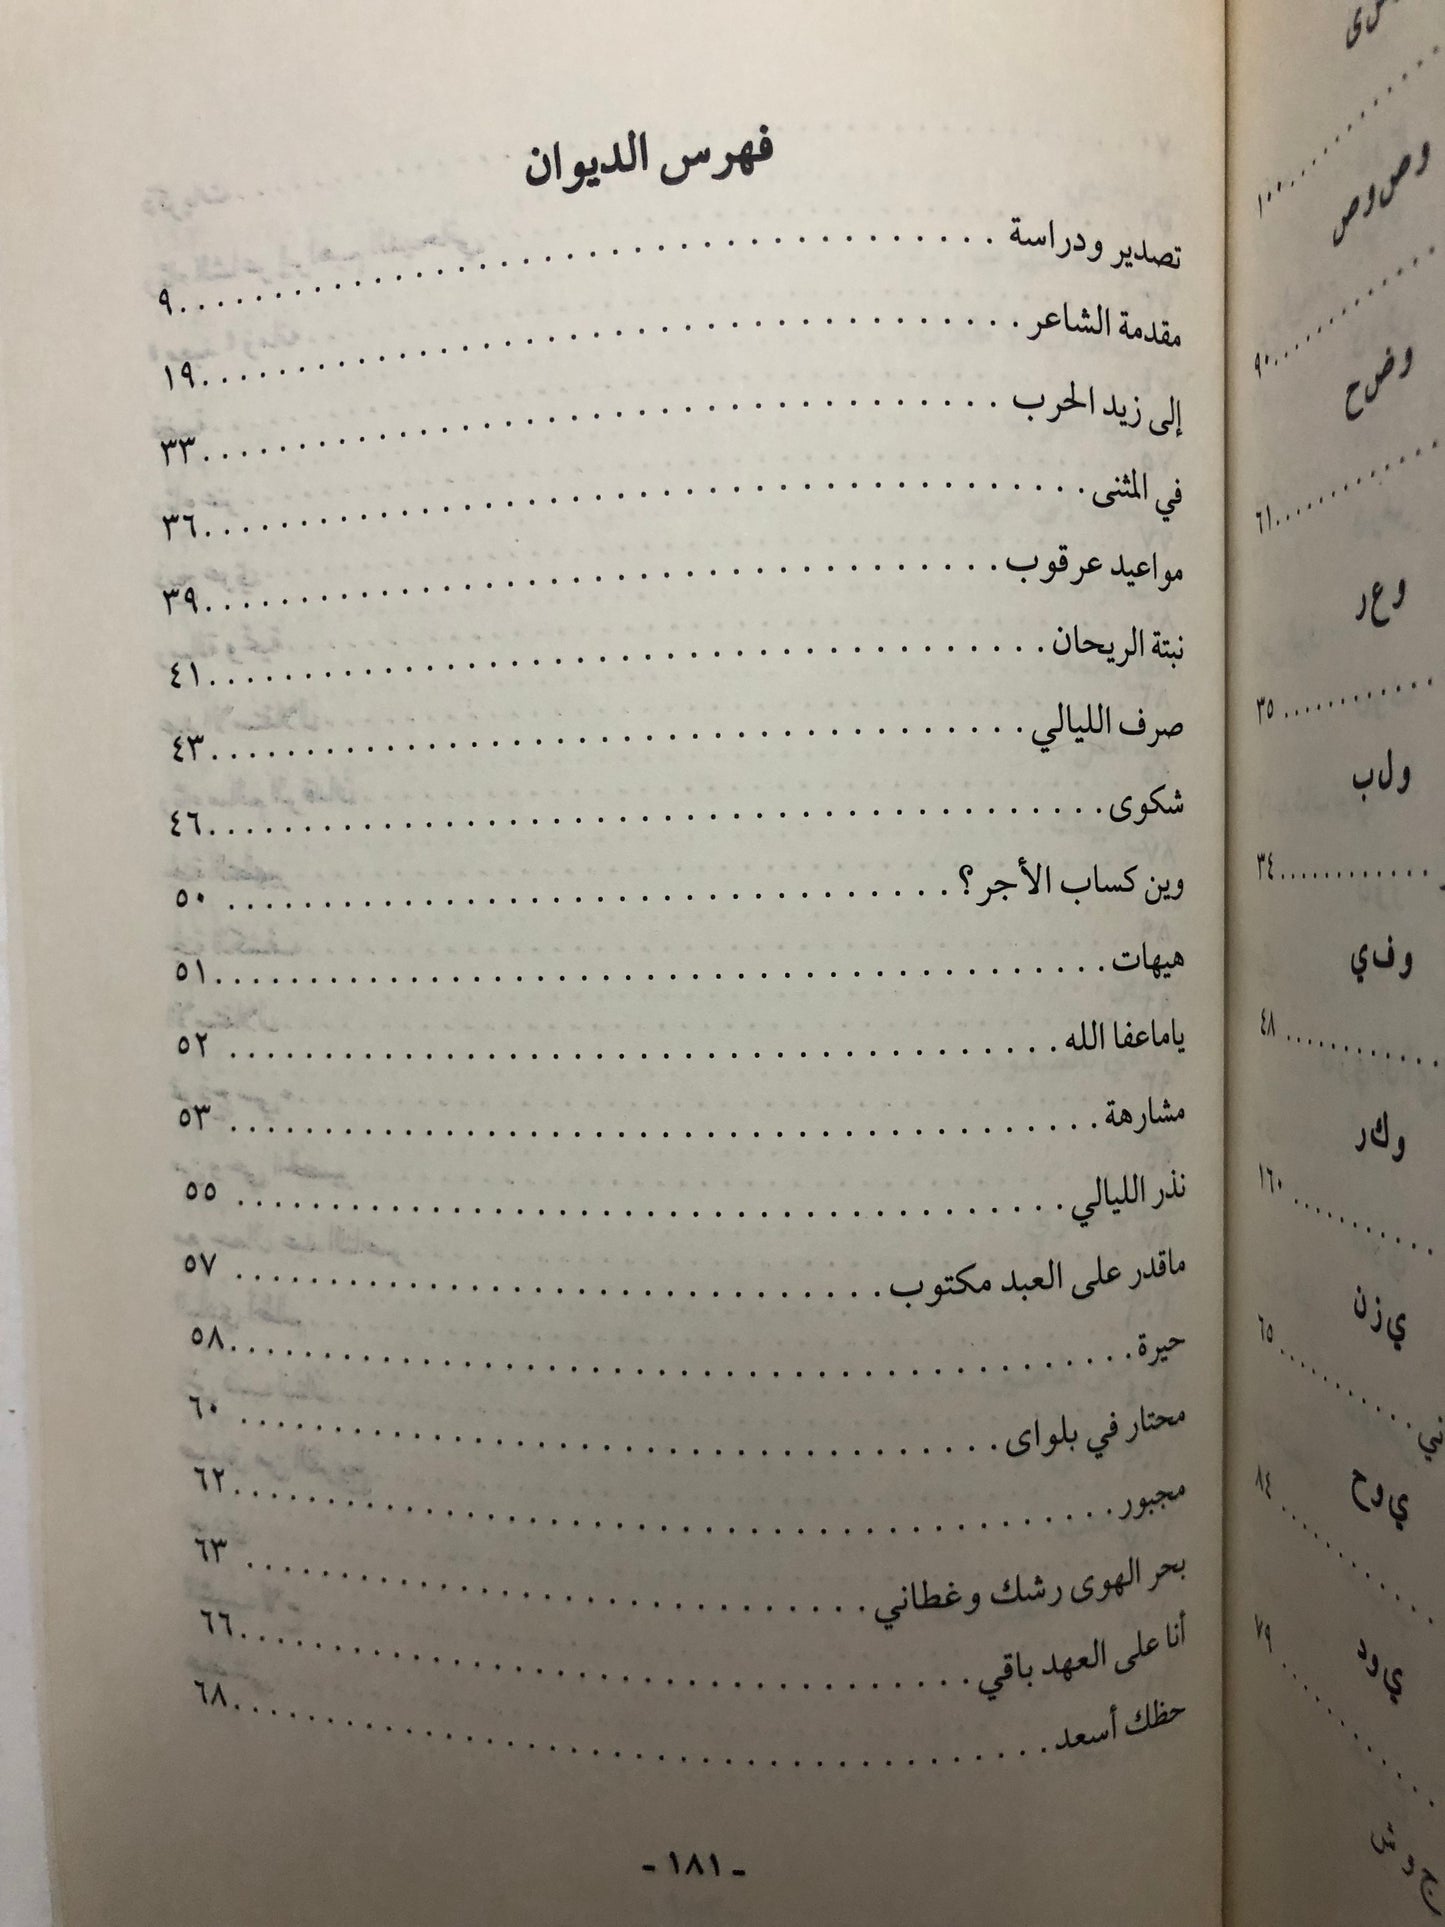 فهرس الديوان
تصدير ودراسة . . . . . . . . . . ٩
مقدمة الشاعر . . . . . . . . . . ١٩
إلى زيد الحرب . . . . . . . . . . ٣٣
في المثنى . . . . . . . . . . ٣٦
مواعيد عرقوب . . . . . . . . . . ٣٩
نبتة الريحان . . . . . . . . . . ٤١
صرف الليالي . . . . . . . . . . ٤٣
شكوى . . . . . . . . . . ٤٦
وين كساب الأجر؟ . . . . . . . . . . ٥٠
هيهات . . . . . . . . . . ٥١
ياماعفا الله . . . . . . . . . . ٥٢
مشارهة . . . . . . . . . . ٥٣
نذر الليالي . . . . . . . . . . ٥٥
ماقدر على العبد مكتوب . . . . . . . . . . ٥٧
حيرة . . . . . . . . . . ٥٨
محتار في بلواى . . . . . . . . . . ٦٠
مجبور . . . . . . . . . . ٦٢
بحر الهوى رشك وغطاني . . . . . . . . . . ٦٣
أنا على العهد باقي . . . . . . . . . . ٦٦
حظك أسعد . . . . . . . . . . ٦٨
- ١٨١ -
وص وص
١٠٠
وض ح
٩٠
٦١
وع ر
٣٥
ول ب
٣٤
وف ي
٤٨
وك ر
١٦٠
ي زن
٦٥
ي وح
٨٤
ي ود
٧٩